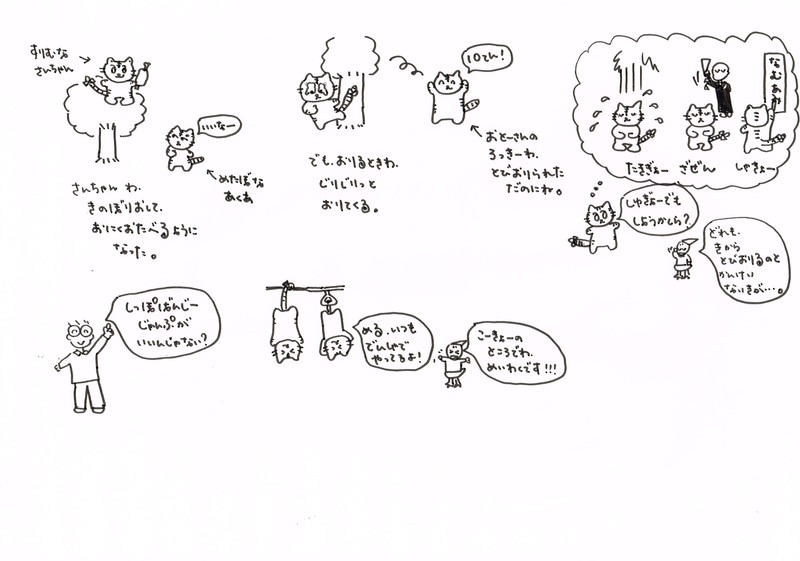 すりむな
さんちゃん
いいなー
めたぼな
あくあ
さんちゃん わ、
きのぼりおして、
おにくおたべるように
なった。
でも、おりるときわ、
じりじりっと
おりてくる。
10てん!
おとーさんの
ろっきーわ、
とびおりられた
だのにね。
なむあみ
たきぎょー
ざぜん
しゃきょー
しゅぎょーでも
しようかしら?
どれも、
きから
とびおりるのと
かんけい
ないきが…。
しっぽばんじー
じゃんぷが
いいんじゃない?
める、いつも
でんしゃで
やってるよ!
こーきょーの
ところでわ、
めいわくです!!!